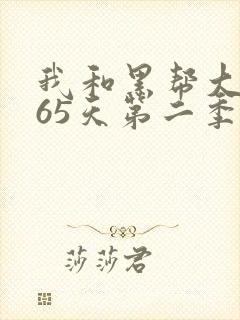 我和黑帮大
65天第二季
莎莎君